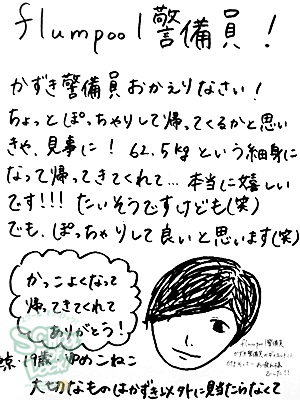 flumpool警備員！
かずき警備員おかえりなさい！
ちょっとぽっちゃりして帰ってくるかと思い
きや、見事に！62.5kgという細身に
なって帰ってきてくれて…本当に嬉しい
です!!!たいそうですけども(笑)
でも、ぽっちゃりして良いと思います(笑)
かっこよくなって
帰ってきてくれて
ありがとう！
19歳・
のこねこ
flumpool警備員
大切なものはかずき以外に見当たらなくて